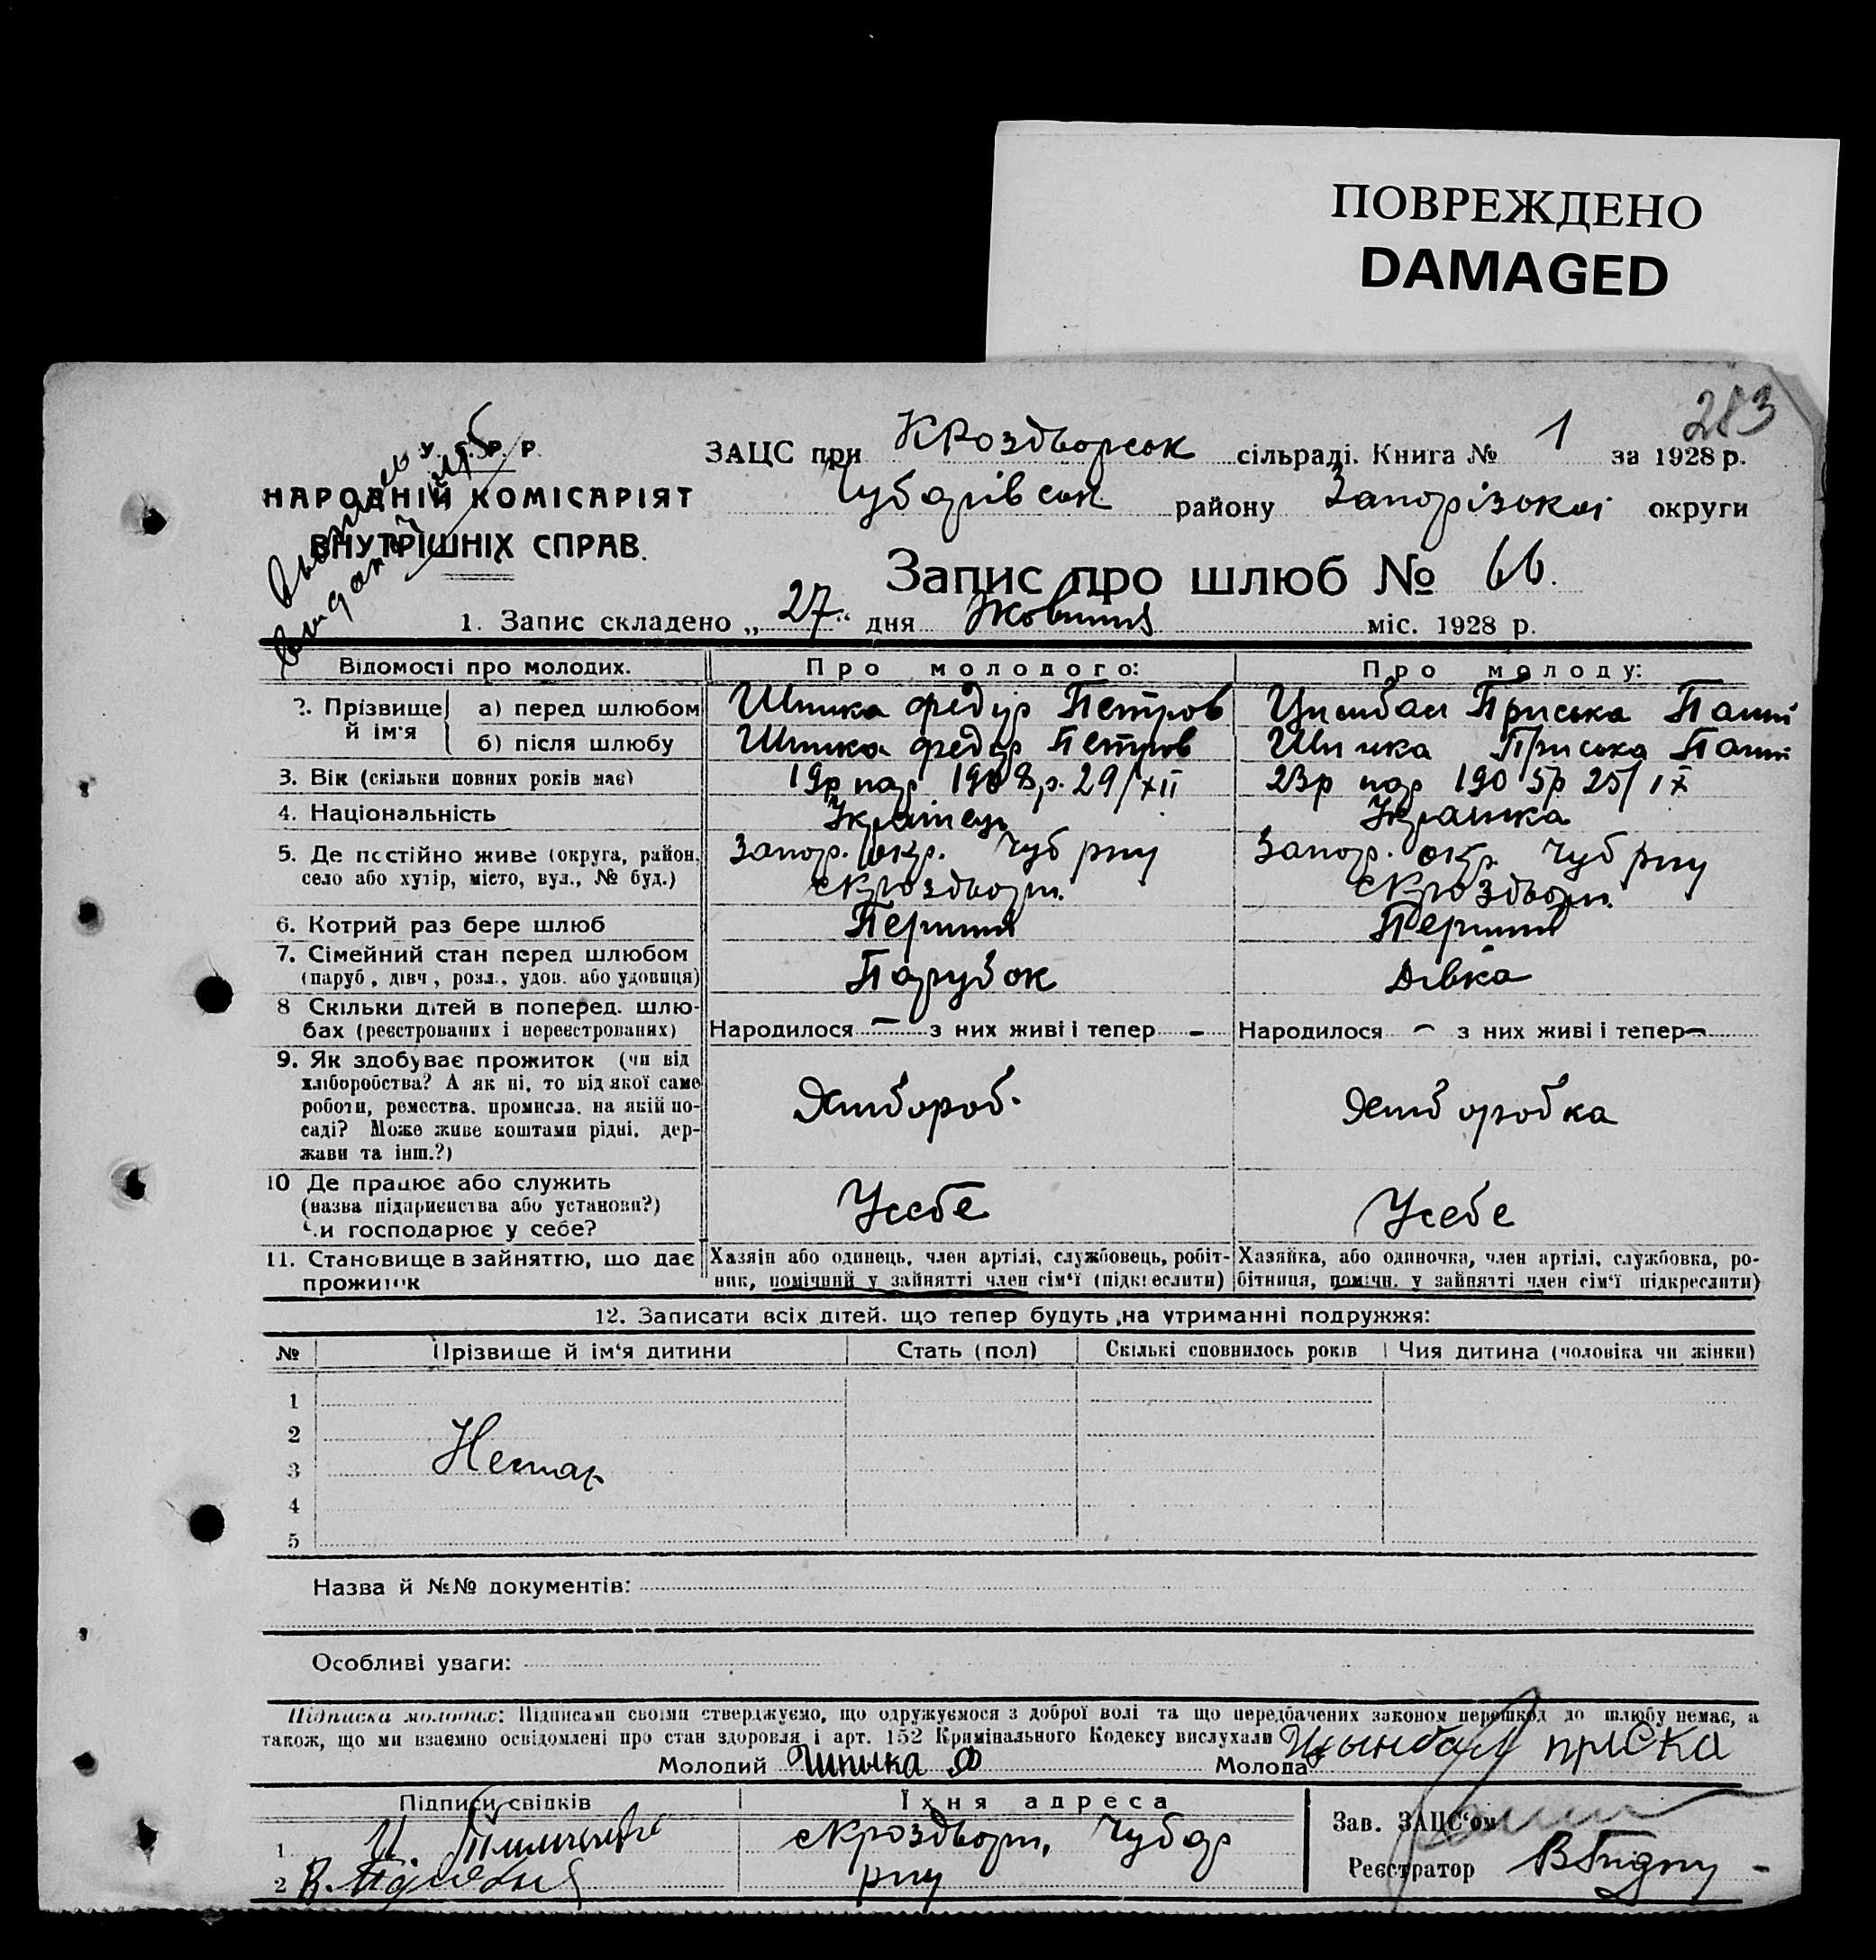 ПОВРЕЖДЕНО
DAMAGED
283
У. С. Р. Р.
НАРОДНІЙ КОМІСАРІЯТ
ВНУТРІШНІХ СПРАВ.
ЗАЦС при КРоздворськ сільраді. Книга № 1 за 1928 р.
Чубарівськ району Запорізької округи
Запис про шлюб № 66.
1. Запис складено „27“ дня Жовтня міс. 1928 р.
Відомості про молодих. Про молодого: Про молоду:
2. Прізвище й ім'я а) перед шлюбом Шпика Федір Петров Цимбал Пріська
б) після шлюбу Шпика Федір Петров Шпика Пріська
3. Вік (скільки повних років має) 19р нар 1908р. 29/XII 23р нар 1905р 25/IX
4. Національність Українець Українка
5. Де постійно живе (округа, район, Запор. окр. Чуб рну Запор. окр. Чуб рну
село або хутір, місто, вул., № буд.) с Кроздвори. с Кроздвори.
6. Котрий раз бере шлюб Перший Перший
7. Сімейний стан перед шлюбом
(паруб, дівч, розл., удов. або удовиця) Парубок Дівка
8 Скільки дітей в поперед. шлю-
бах (реєстрованих і нереєстрованих) Народилося – з них живі і тепер – Народилося – з них живі і тепер –
9. Як здобуває прожиток (чи від
хліборобства? А як ні, то від якої саме
роботи, ремества, промисла, на якій по- Хлібороб. Хліборобка
саді? Може живе коштами рідні, дер-
жави та інш.?)
10 Де працює або служить
(назва підприємства або установи?) Усебе Усебе
Чи господарює у себе?
11. Становище в зайняттю, що дає Хазяїн або одинець, член артілі, службовець, робіт- Хазяйка, або одиночка, член артілі, службовка, ро-
прожиток ник, помічний у зайнятті член сім'ї (підкреслити) бітниця, помічн. у зайнятті член сім'ї підкреслити)
12. Записати всіх дітей, що тепер будуть на утриманні подружжя:
№ Прізвище й ім'я дитини Стать (пол) Скількі сповнилось років Чия дитина (чоловіка чи жінки)
1
2
3 Немає
4
5
Назва й №№ документів:
Особливі уваги:
Підписка молодих: Підписами своїми стверджуємо, що одружуємося з доброї волі та що передбачених законом перешкод до шлюбу немає, а
також, що ми взаємно освідомлені про стан здоров'я і арт. 152 Кримінального Кодексу вислухали
Молодий Шпыка Ф Молода Цынбал приска
Підписи свідків Їхня адреса
1 с Кроздвори, Чубар Зав. ЗАЦС'ом
2 рну Реєстратор